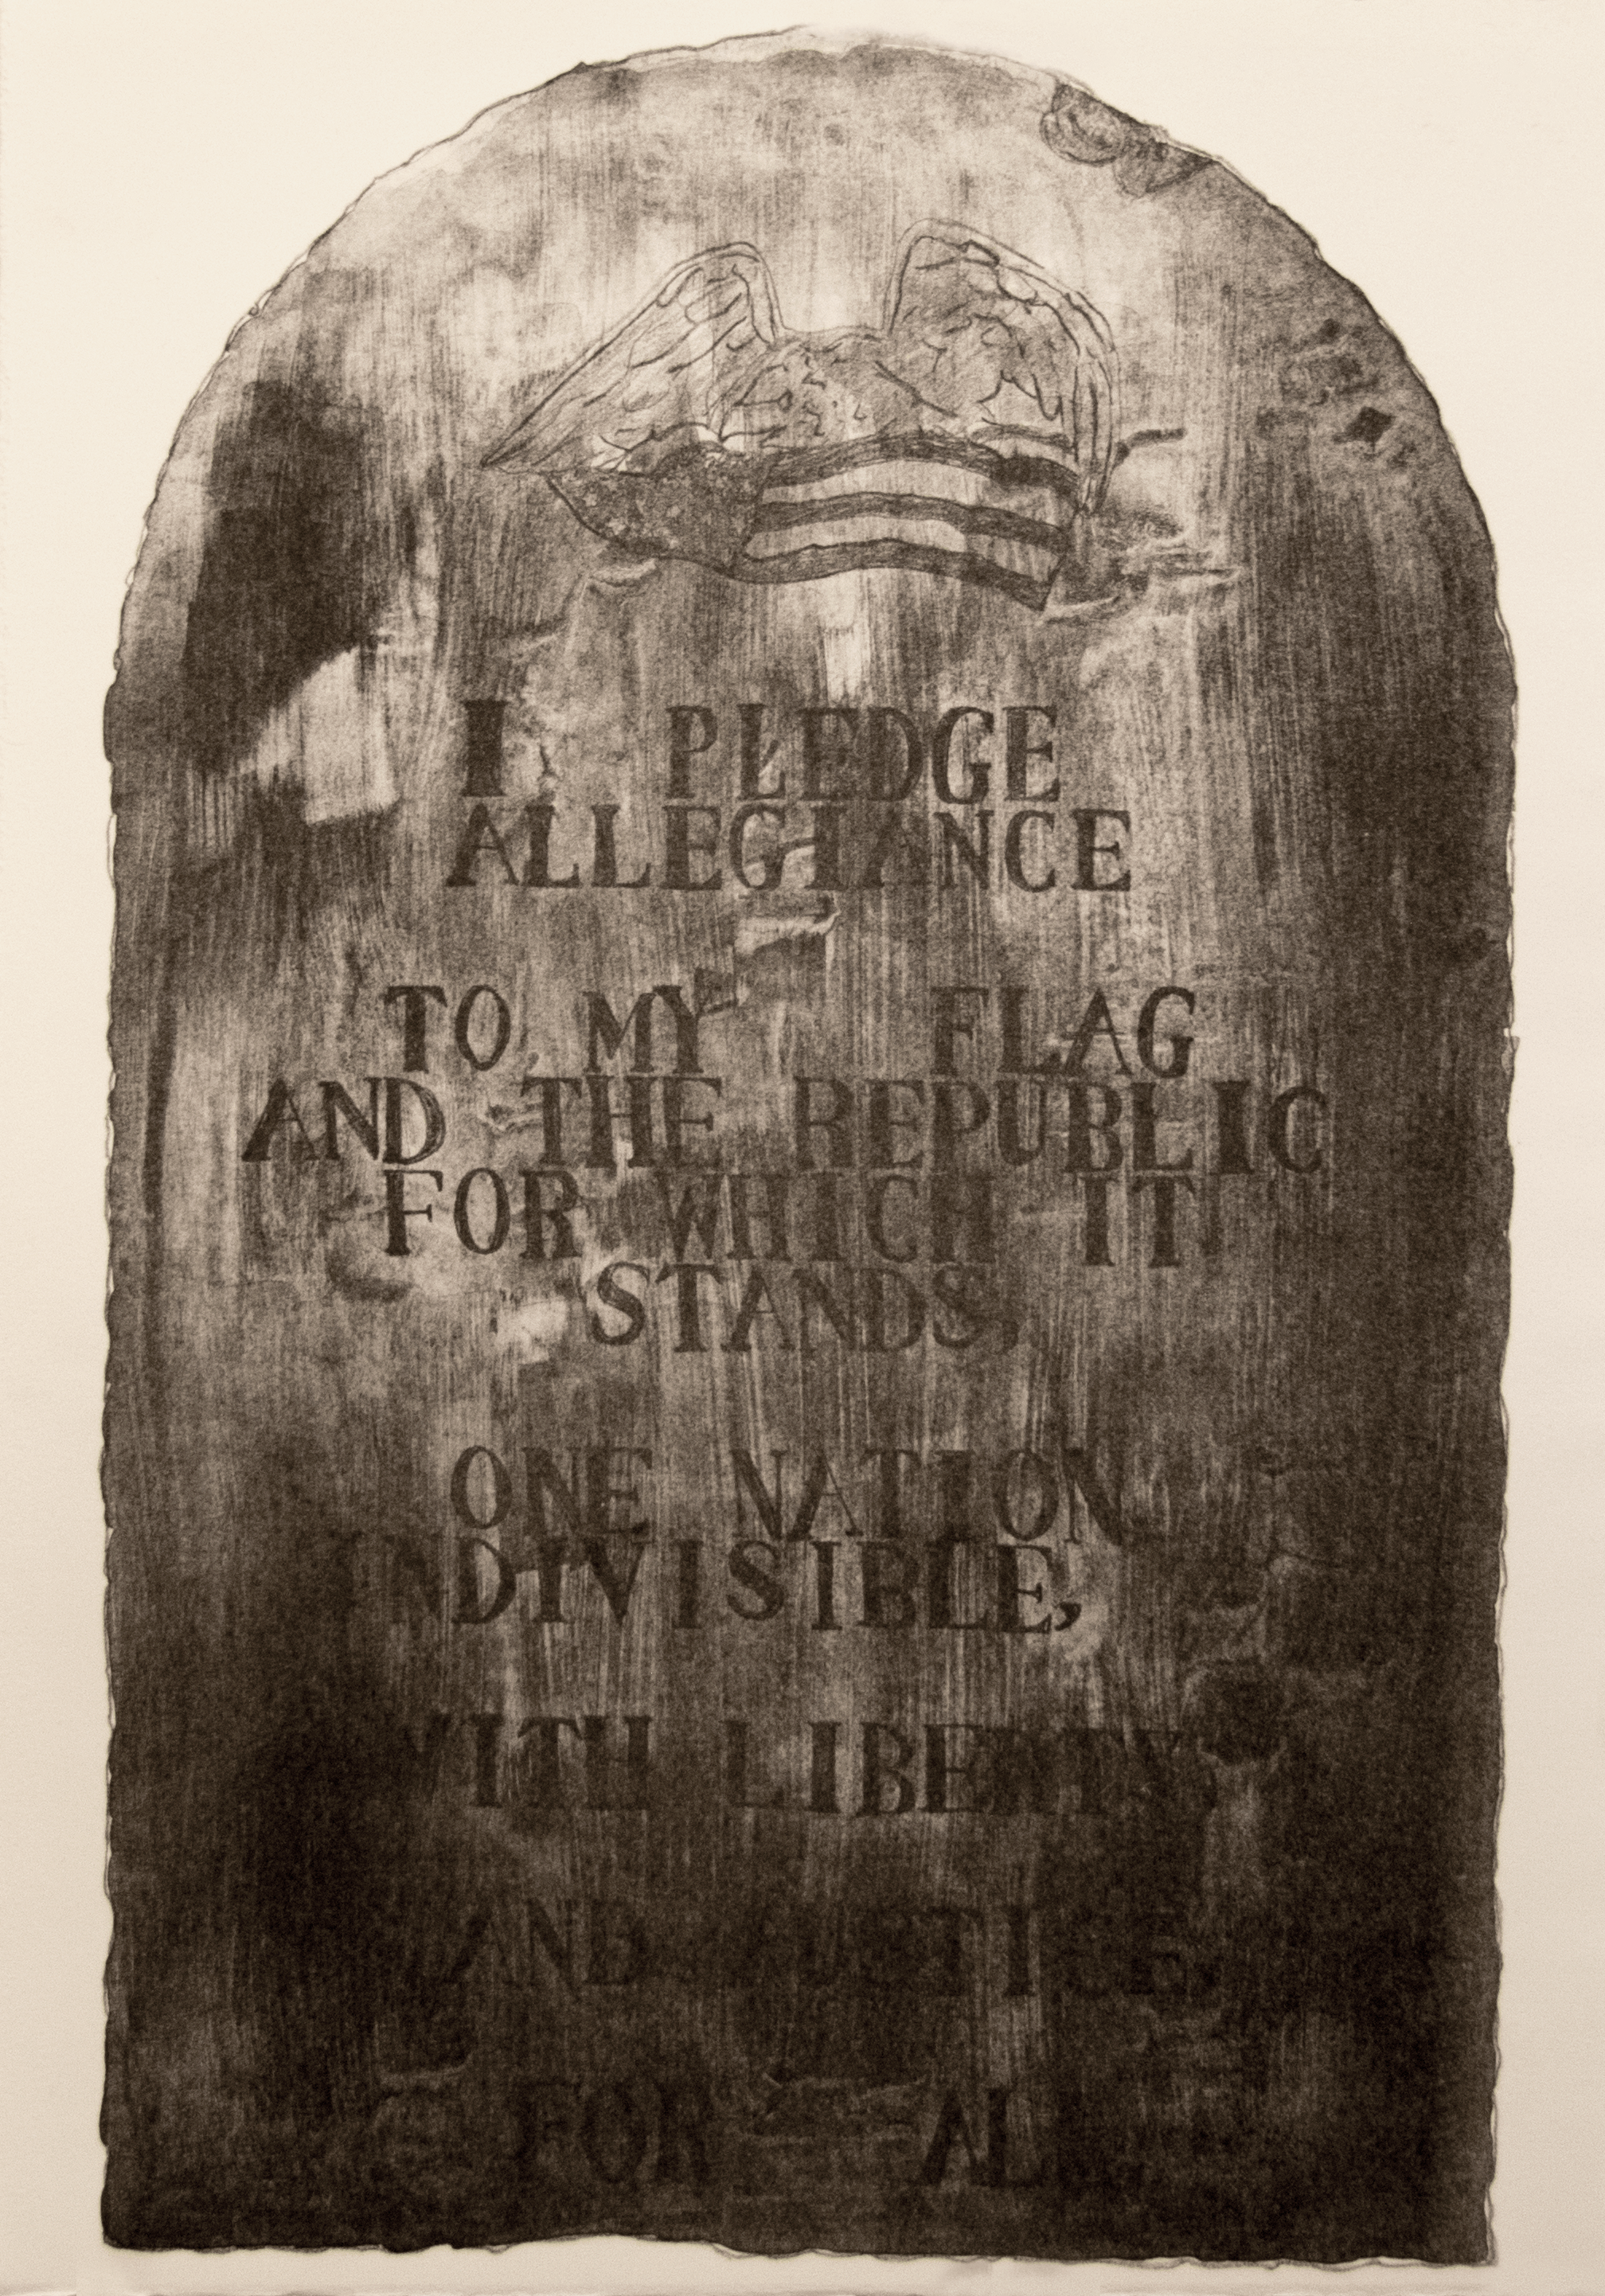 I PLEDGE
ALLEGIANCE
TO MY FLAG
AND THE REPUBLIC
FOR WHICH IT
STANDS,
ONE NATION
INDIVISIBLE,
WITH LIBERTY
AND JUSTICE
FOR ALL